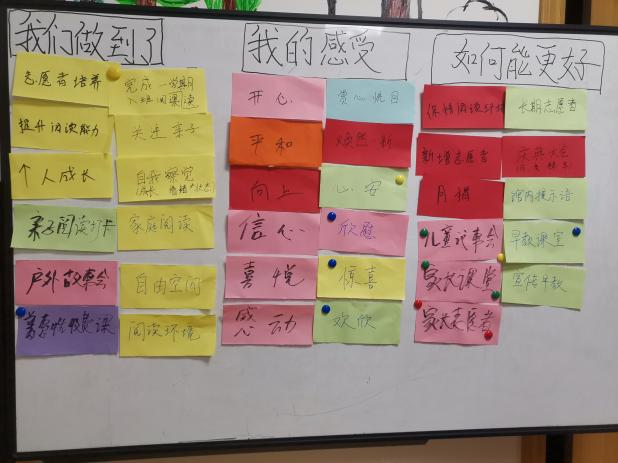 我们做到了
志愿者培养
完成一学期
提升阅读能力
关注亲子
个人成长
自我察觉
亲子阅读打卡
家庭阅读
户外故事会
自由空间
阅读环境
我的感受
开心
赏心悦目
平和
焕然一新
向上
心安
信心
欣慰
喜悦
惊喜
感动
欢欣
如何能更好
保持阅读环境
长期志愿者
新增志愿者
庆典大会
月捐
馆内提示语
儿童故事会
早教课堂
家长课堂
宣传早教
家长志愿者